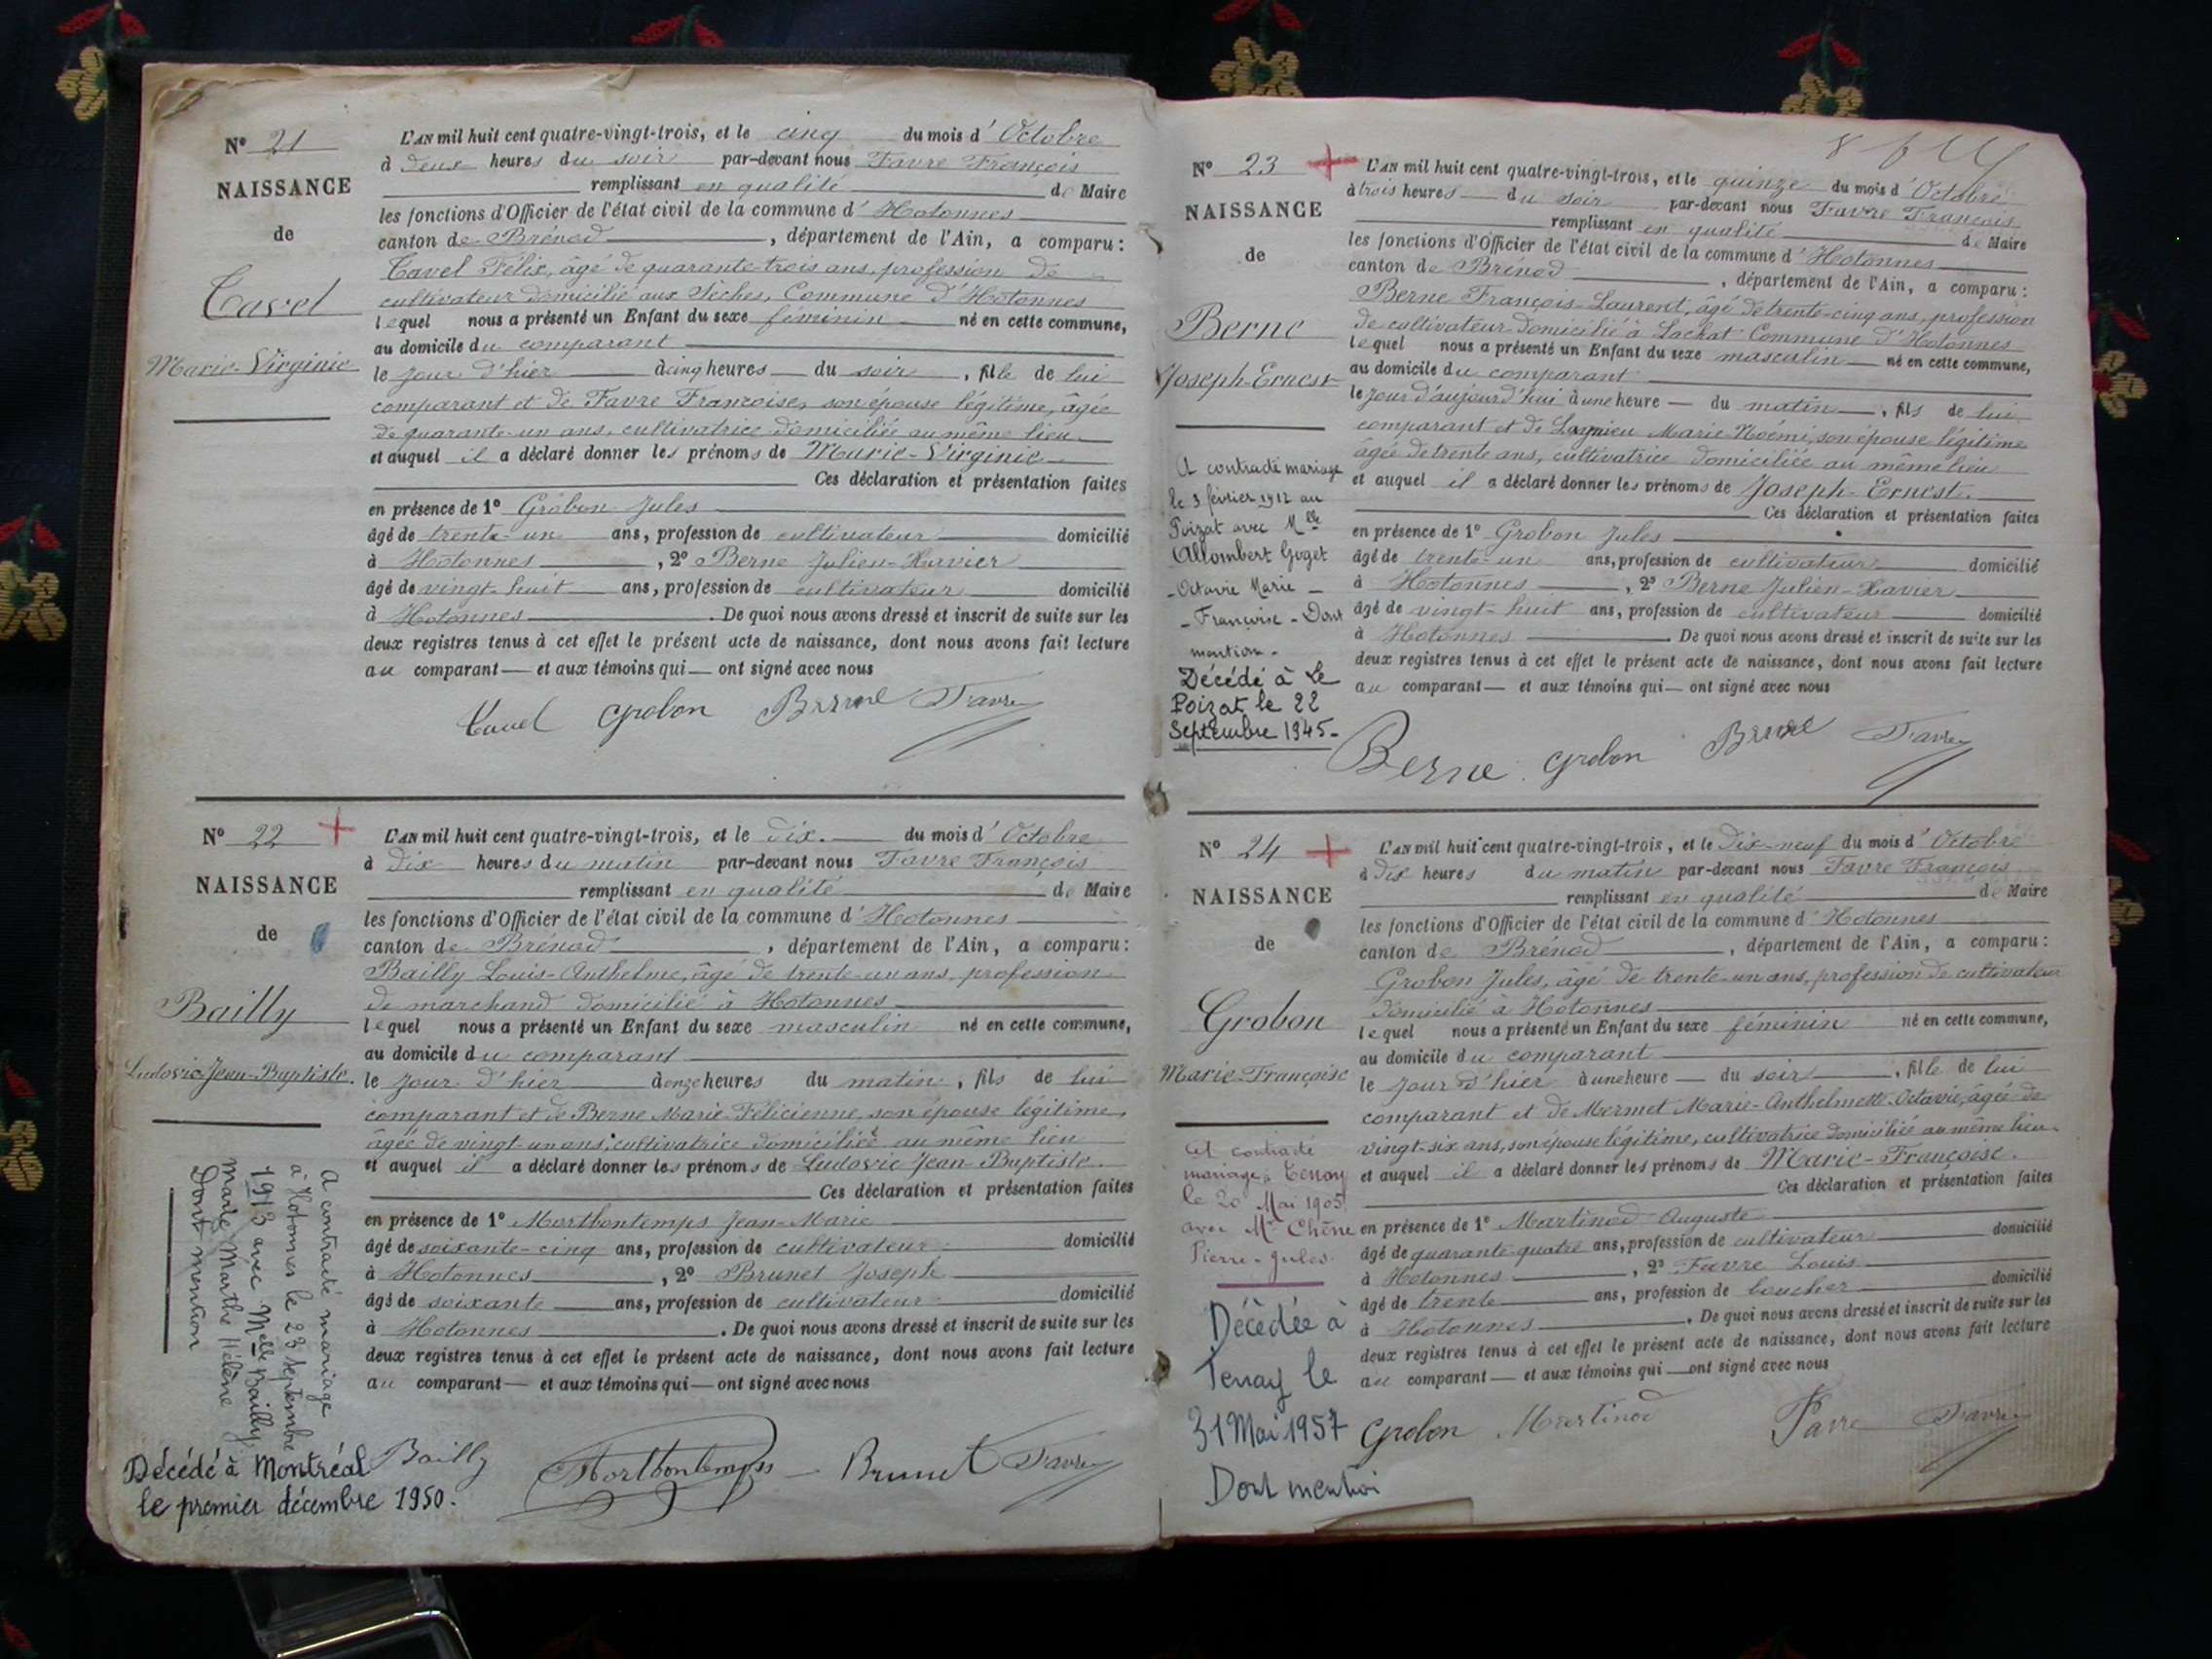 N° 21
NAISSANCE
de
Cavel
Marie-Virginie
L'AN mil huit cent quatre-vingt-trois, et le cinq du mois d'Octobre
à deux heures du soir par-devant nous Favre François
remplissant en qualité de Maire
les fonctions d'Officier de l'état civil de la commune d'Hotonnes
canton de Brénod, département de l'Ain, a comparu :
Cavel Félix, âgé de quarante-trois ans, profession de
cultivateur domicilié aux Sèches, Commune d'Hotonnes
lequel nous a présenté un Enfant du sexe féminin né en cette commune,
au domicile du comparant
le jour d'hier à cinq heures du soir, fille de lui
comparant et de Favre Françoise, son épouse légitime, âgée
de quarante-un ans, cultivatrice domiciliée au même lieu
et auquel il a déclaré donner les prénoms de Marie-Virginie
Ces déclaration et présentation faites
en présence de 1° Grobon Jules
âgé de trente-un ans, profession de cultivateur domicilié
à Hotonnes, 2° Berne Julien-Xavier
âgé de vingt-huit ans, profession de cultivateur domicilié
à Hotonnes. De quoi nous avons dressé et inscrit de suite sur les
deux registres tenus à cet effet le présent acte de naissance, dont nous avons fait lecture
au comparant et aux témoins qui ont signé avec nous
Cavel Grobon Berne Favre
N° 22
NAISSANCE
de
Bailly
Ludovic-Jean-Baptiste.
A contracté mariage
à Hotonnes le 23 septembre
1913 avec Melle Bailly
Marie Marthe Hélène
Dont mention
Décédé à Montréal
le premier décembre 1950.
L'AN mil huit cent quatre-vingt-trois, et le dix du mois d'Octobre
à dix heures du matin par-devant nous Favre François
remplissant en qualité de Maire
les fonctions d'Officier de l'état civil de la commune d'Hotonnes
canton de Brénod, département de l'Ain, a comparu :
Bailly Louis-Anthelme, âgé de trente-un ans, profession
de marchand domicilié à Hotonnes
lequel nous a présenté un Enfant du sexe masculin né en cette commune,
au domicile du comparant
le jour d'hier à onze heures du matin, fils de lui
comparant et de Berne Marie-Félicienne, son épouse légitime,
âgée de vingt-un ans, cultivatrice domiciliée au même lieu
et auquel il a déclaré donner les prénoms de Ludovic Jean-Baptiste.
Ces déclaration et présentation faites
en présence de 1° Mortbontemps Jean-Marie
âgé de soixante-cinq ans, profession de cultivateur domicilié
à Hotonnes, 2° Brunet Joseph
âgé de soixante ans, profession de cultivateur domicilié
à Hotonnes. De quoi nous avons dressé et inscrit de suite sur les
deux registres tenus à cet effet le présent acte de naissance, dont nous avons fait lecture
au comparant et aux témoins qui ont signé avec nous
Bailly Mortbontemps Brunet Favre
N° 23
NAISSANCE
de
Berne
Joseph-Ernest
A contracté mariage
le 3 février 1912 au
Poizat avec Mlle
Allombert Goget
Octavie Marie
Françoise - Dont
mention -
Décédé à Le
Poizat le 22
Septembre 1945 -
L'AN mil huit cent quatre-vingt-trois, et le quinze du mois d'Octobre
à trois heures du soir par-devant nous Favre François
remplissant en qualité de Maire
les fonctions d'Officier de l'état civil de la commune d'Hotonnes
canton de Brénod, département de l'Ain, a comparu :
Berne François-Laurent, âgé de trente-cinq ans, profession
de cultivateur domicilié à Lachat Commune d'Hotonnes
lequel nous a présenté un Enfant du sexe masculin né en cette commune,
au domicile du comparant
le jour d'aujourd'hui à une heure du matin, fils de lui
comparant et de Lagnieu Marie-Noémi, son épouse légitime
âgée de trente ans, cultivatrice domiciliée au même lieu
et auquel il a déclaré donner les prénoms de Joseph-Ernest.
Ces déclaration et présentation faites
en présence de 1° Grobon Jules
âgé de trente-un ans, profession de cultivateur domicilié
à Hotonnes, 2° Berne Julien-Xavier
âgé de vingt-huit ans, profession de cultivateur domicilié
à Hotonnes. De quoi nous avons dressé et inscrit de suite sur les
deux registres tenus à cet effet le présent acte de naissance, dont nous avons fait lecture
au comparant et aux témoins qui ont signé avec nous
Berne Grobon Berne Favre
N° 24
NAISSANCE
de
Grobon
Marie-Françoise
A contracté
mariage à Tenay
le 20 Mai 1905
avec Mr Chêne
Pierre-Jules
Décédée à
Tenay le
31 Mai 1957
Dont mention
L'AN mil huit cent quatre-vingt-trois, et le dix-neuf du mois d'Octobre
à dix heures du matin par-devant nous Favre François
remplissant en qualité de Maire
les fonctions d'Officier de l'état civil de la commune d'Hotonnes
canton de Brénod, département de l'Ain, a comparu :
Grobon Jules, âgé de trente-un ans, profession de cultivateur
domicilié à Hotonnes
lequel nous a présenté un Enfant du sexe féminin né en cette commune,
au domicile du comparant
le jour d'hier à une heure du soir, fille de lui
comparant et de Mermet Marie-Anthelmette-Octavie, âgée de
vingt-six ans, son épouse légitime, cultivatrice domiciliée au même lieu.
et auquel il a déclaré donner les prénoms de Marie-Françoise.
Ces déclaration et présentation faites
en présence de 1° Martinod Auguste
âgé de quarante-quatre ans, profession de cultivateur domicilié
à Hotonnes, 2° Favre Louis
âgé de trente ans, profession de boucher domicilié
à Hotonnes. De quoi nous avons dressé et inscrit de suite sur les
deux registres tenus à cet effet le présent acte de naissance, dont nous avons fait lecture
au comparant et aux témoins qui ont signé avec nous
Grobon Martinod Favre Favre